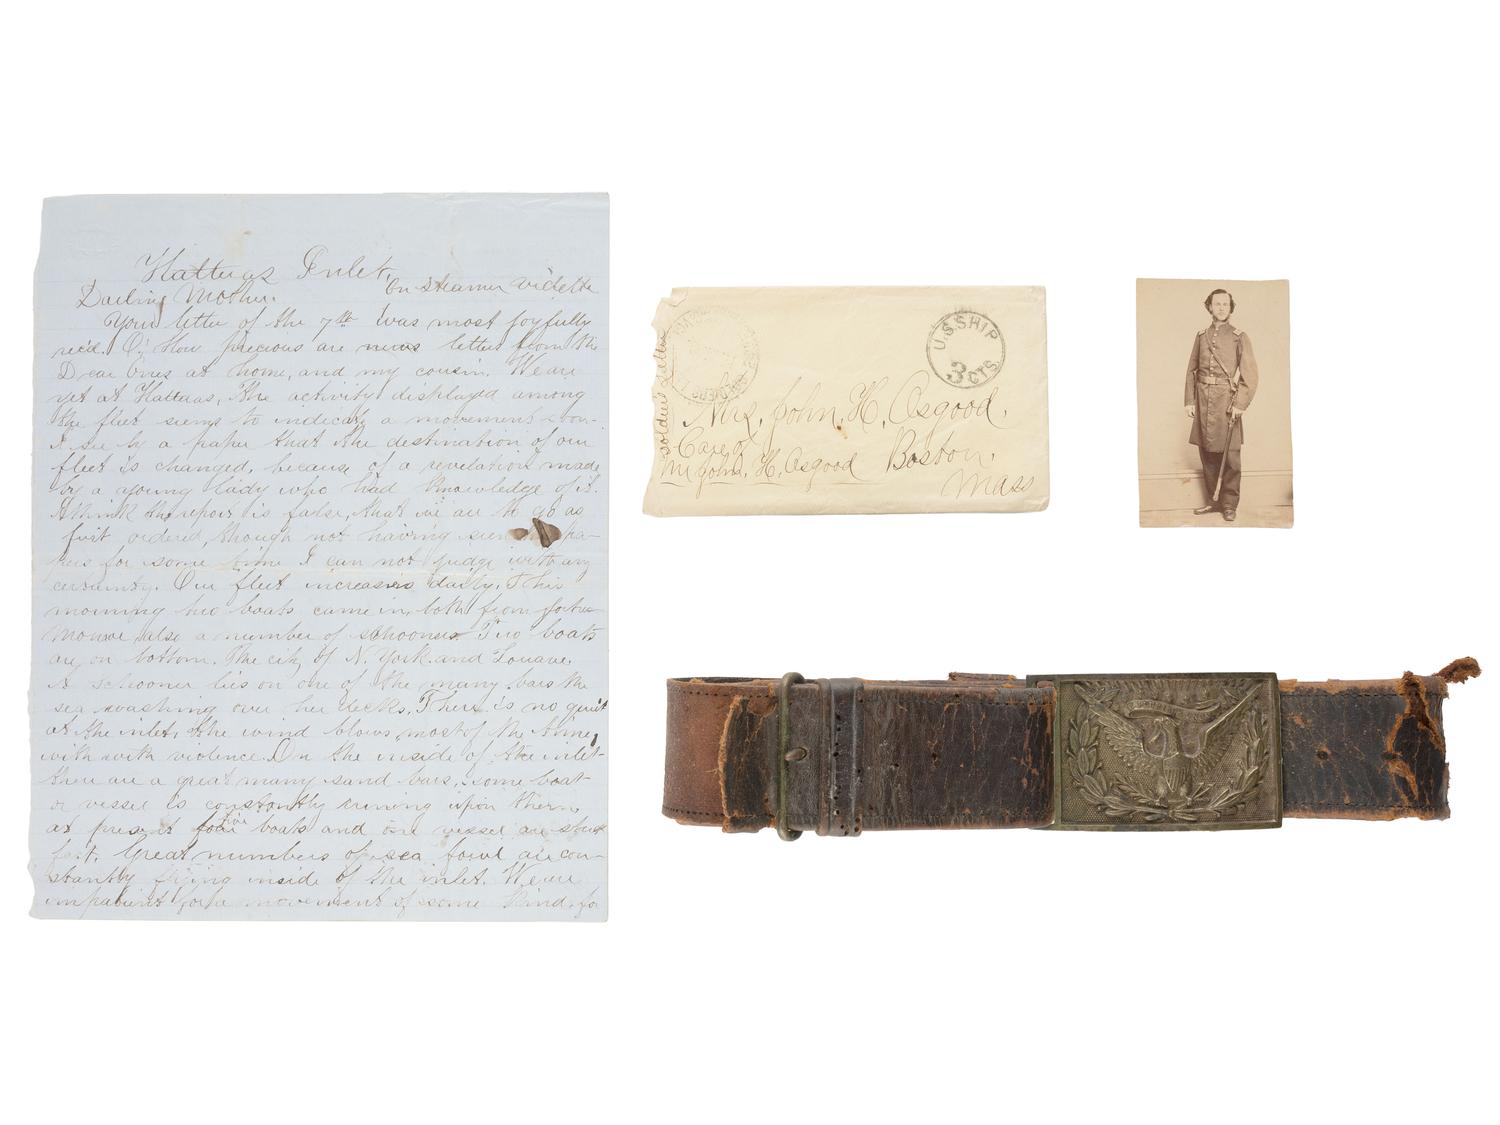 Hatteras Inlet,
On Steamer Vidette
Darling Mother.
Your letter of the 7th was most joyfully
rec'd. O! How precious are news letters from the
Dear Ones at home, and my cousin. We are
yet at Hatteras, the activity displayed among
the fleet seems to indicate a movement soon.
I see by a paper that the destination of our
fleet is changed, because of a revelation made
by a young lady who had knowledge of it.
I think the report is false, that we are to go as
first ordered, though not having seen pa-
pers for some time I can not judge with any
certainty. Our fleet increases daily. This
morning two boats came in, both from Fortre
Monroe, also a number of schooners. Two boats
are on bottom. The city of N. York and Zouave.
A schooner lies on one of the many bars the
sea washing over her decks. There is no quiet
at the inlet, the wind blows most of the time,
with with violence. On the inside of the inlet
there are a great many sand bars, some boat
or vessel is constantly running upon them,
at present four five boats and one vessel are stuck
fast. Great numbers of sea fowl are con-
stantly flying inside of the inlet. We are
impatient for a movement of some kind, for
Soldier's Letter
U.S. SHIP
3 CTS.
Mrs. John. H. Osgood.
Care of
Mr John. H. Osgood Boston.
Mass